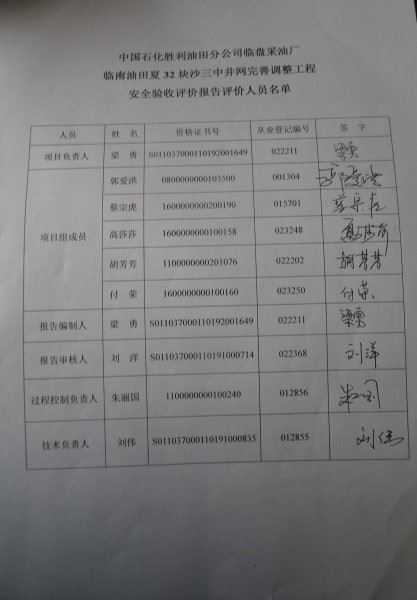 中国石化胜利油田分公司临盘采油厂
临南油田夏 32 块沙三中井网完善调整工程
安全验收评价报告评价人员名单
人员 姓 名 资格证书号 从业登记编号 签 字
项目负责人 梁 勇 S011037000110192001649 022211 梁勇
项目组成员 郭爱洪 0800000000103500 001304 郭爱洪
蔡宗虎 1600000000200190 015701
高莎莎 1600000000100158 023248 高莎莎
胡芳芳 1100000000201076 022202 胡芳芳
付 荣 1600000000100160 023250 付荣
报告编制人 梁 勇 S011037000110192001649 022211 梁勇
报告审核人 刘 洋 S011037000110191000714 022368 刘洋
过程控制负责人 朱丽国 1100000000100240 012856
技术负责人 刘伟 S011037000110191000835 012855 刘伟